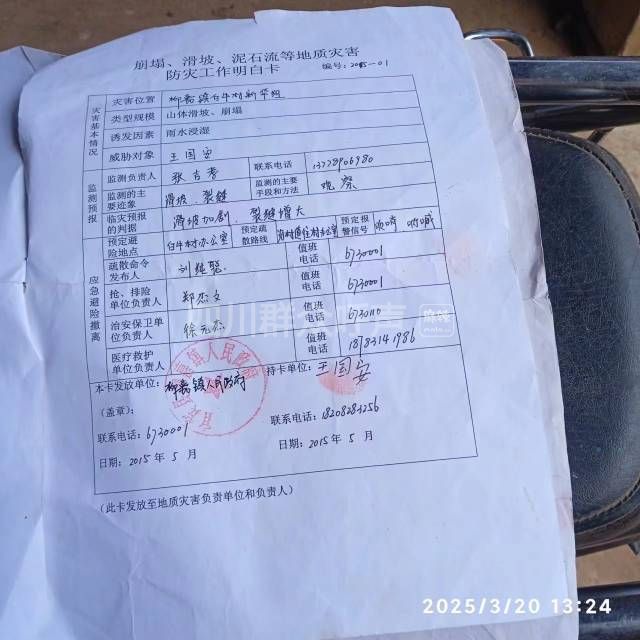 崩塌、滑坡、泥石流等地质灾害
防灾工作明白卡
编号：2015-01
灾害基本情况
灾害位置 柳嘉镇白牛村新华组
类型规模 山体滑坡、崩塌
诱发因素 雨水浸湿
威胁对象 王国安
监测预报
监测负责人 张吉孝 联系电话 13778906980
监测的主要迹象 滑坡、裂缝 监测的主要手段和方法 观察
临灾预报的判据 滑坡加剧、裂缝增大
应急避险撤离
预定避险地点 白牛村办公室 预定疏散路线 预定报警信号 呐喊
疏散命令发布人 值班电话 6730001
抢、排险单位负责人 值班电话 6730001
治安保卫单位负责人 徐元杰 值班电话 6730110
医疗救护单位负责人 值班电话 18183141986
本卡发放单位：柳嘉镇人民政府 持卡单位：王国安
（盖章）：
联系电话：6730001 联系电话：18208283256
日期：2015年5月 日期：2015年5月
（此卡发放至地质灾害负责单位和负责人）
镇人民政府
四川群众呼声
2025/3/20 13:24